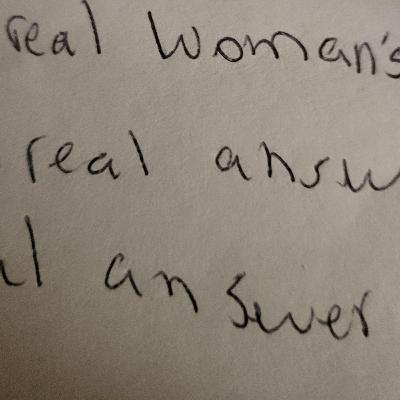 real Woman's
real answ
al answer